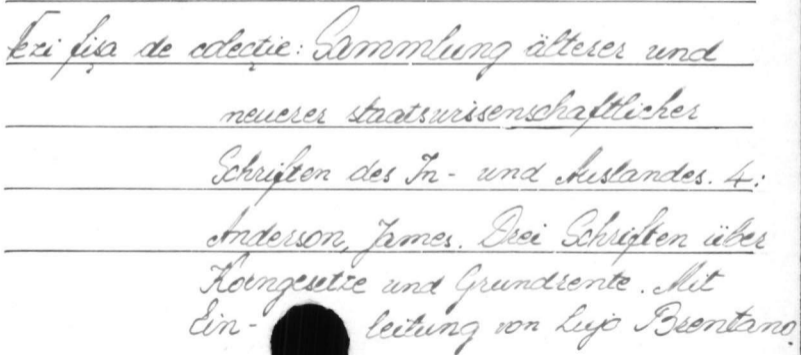 Vezi fişa de colecţie: Sammlung älterer und
neuerer staatswissenschaftlicher
Schriften des In- und Auslandes. 4:
Anderson, James. Drei Schriften über
Korngesetze und Grundrente. Mit
Ein- leitung von Lujo Brentano.